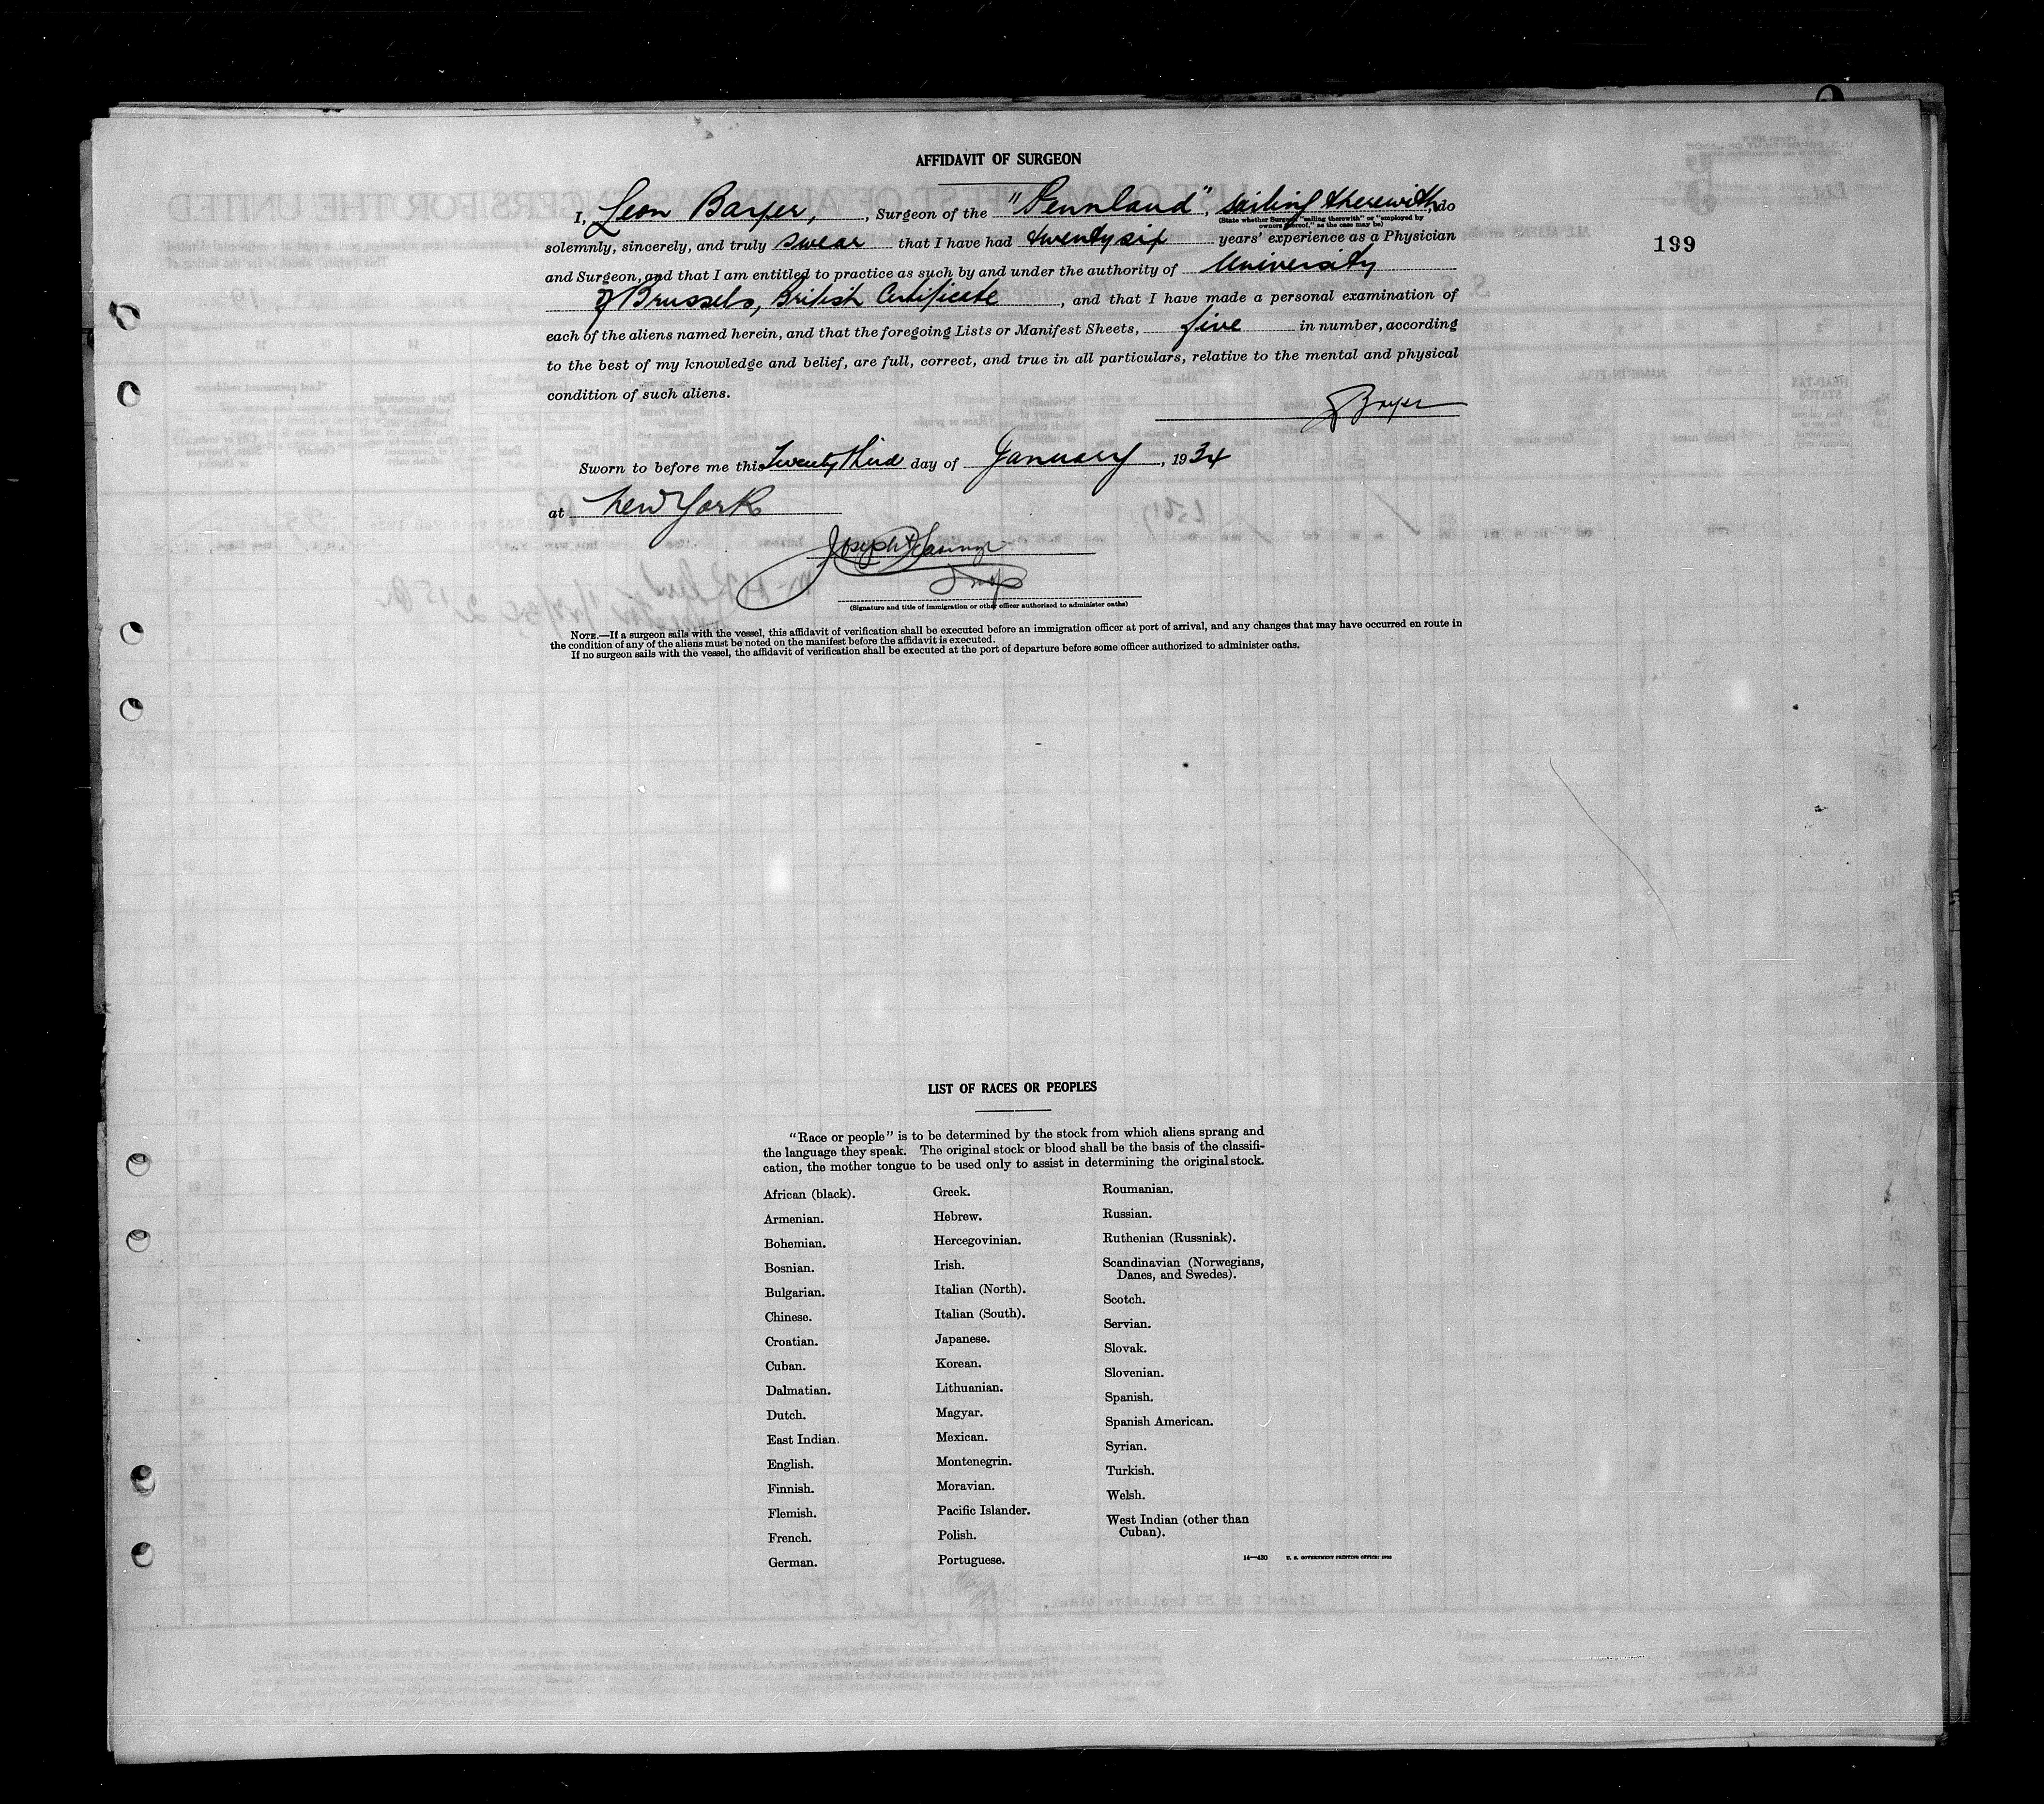 AFFIDAVIT OF SURGEON
I, Leon Barjer, , Surgeon of the "Pennland", sailing therewith, do
(State whether Surgeon "sailing therewith" or "employed by
owners thereof," as the case may be)
solemnly, sincerely, and truly swear that I have had twenty six years' experience as a Physician
199
and Surgeon, and that I am entitled to practice as such by and under the authority of University
of Brussels, British Certificate , and that I have made a personal examination of
each of the aliens named herein, and that the foregoing Lists or Manifest Sheets, five in number, according
to the best of my knowledge and belief, are full, correct, and true in all particulars, relative to the mental and physical
condition of such aliens.
Sworn to before me this Twenty third day of January , 1934
at New York
Joseph
Insp
(Signature and title of immigration or other officer authorized to administer oaths)
NOTE.—If a surgeon sails with the vessel, this affidavit of verification shall be executed before an immigration officer at port of arrival, and any changes that may have occurred en route in
the condition of any of the aliens must be noted on the manifest before the affidavit is executed.
If no surgeon sails with the vessel, the affidavit of verification shall be executed at the port of departure before some officer authorized to administer oaths.
LIST OF RACES OR PEOPLES
"Race or people" is to be determined by the stock from which aliens sprang and
the language they speak. The original stock or blood shall be the basis of the classifi-
cation, the mother tongue to be used only to assist in determining the original stock.
African (black).
Armenian.
Bohemian.
Bosnian.
Bulgarian.
Chinese.
Croatian.
Cuban.
Dalmatian.
Dutch.
East Indian.
English.
Finnish.
Flemish.
French.
German.
Greek.
Hebrew.
Hercegovinian.
Irish.
Italian (North).
Italian (South).
Japanese.
Korean.
Lithuanian.
Magyar.
Mexican.
Montenegrin.
Moravian.
Pacific Islander.
Polish.
Portuguese.
Roumanian.
Russian.
Ruthenian (Russniak).
Scandinavian (Norwegians,
Danes, and Swedes).
Scotch.
Servian.
Slovak.
Slovenian.
Spanish.
Spanish American.
Syrian.
Turkish.
Welsh.
West Indian (other than
Cuban).
14—430 U. S. GOVERNMENT PRINTING OFFICE